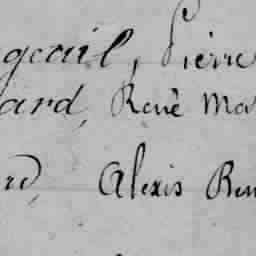 geail, Pierre
ard, René Mar
rd, Alexis Ren